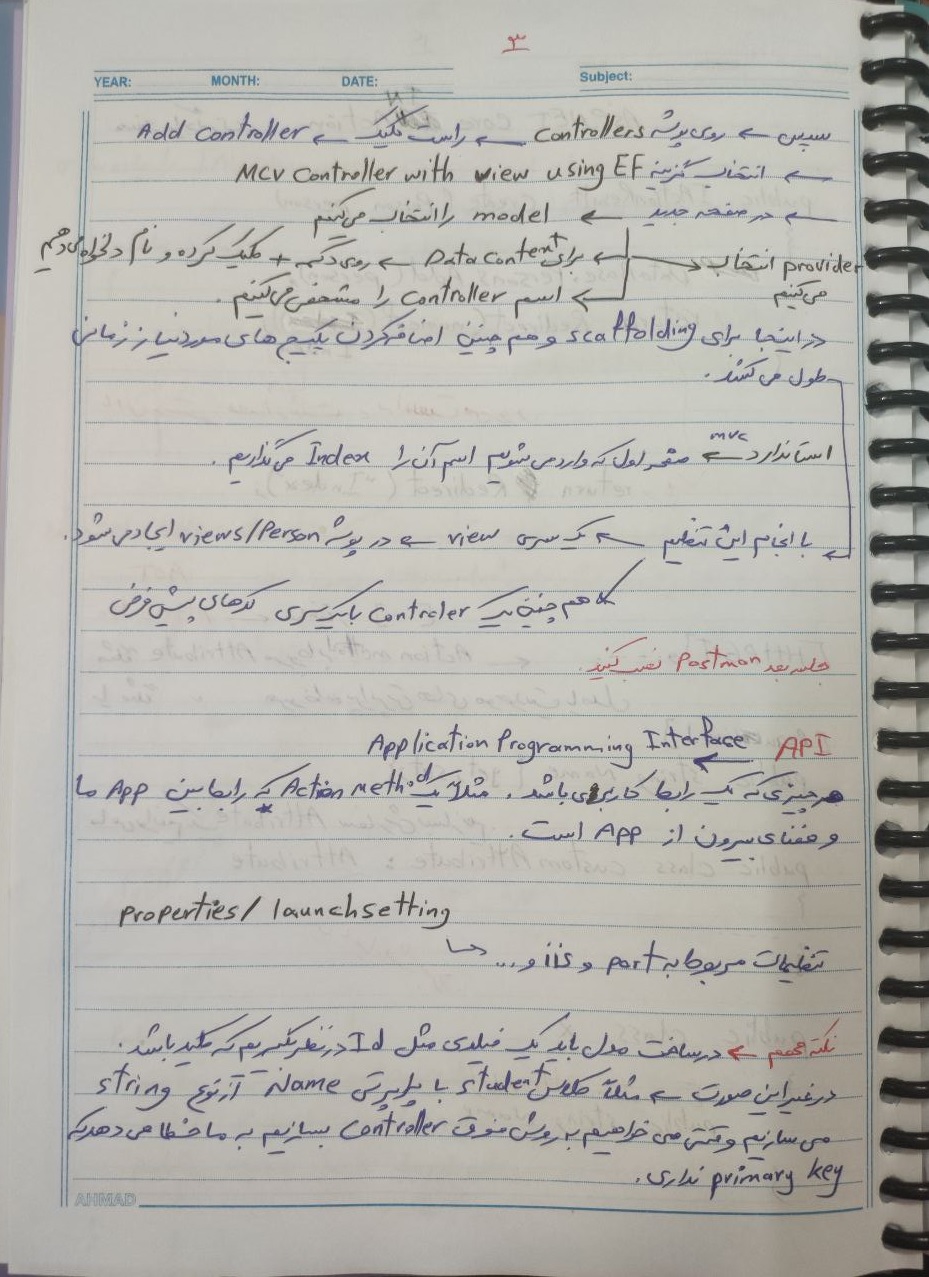 ۳
YEAR: MONTH: DATE: Subject:
سپس ← روی پوشه Controllers ← راست کلیک ← Add Controller
← انتخاب گزینه MCV Controller with view using EF
← در صفحه جدید ← model را انتخاب می‌کنیم
← برای Data Context ← روی دکمه + کلیک کرده و نام دلخواه می‌دهیم
← انتخاب provider
می‌کنیم
← اسم Controller را مشخص می‌کنیم.
در اینجا برای scaffolding و هم چنین اضافه کردن پکیج های مورد نیاز زمانی
طول می‌کشد.
استاندارد mvc ← صفحه اول که وارد می‌شویم اسم آن را Index می‌گذاریم.
با انجام این تنظیم ← یک سری view ← در پوشه views/Person ایجاد می‌شود.
هم چنین یک Controler با یک سری کدهای پیش فرض
جلسه بعد Postman نصب کنید.
API Application Programming Interface
هر چیزی که یک رابط کاربری باشد. مثلاً یک Action method که رابط بین App ما
و فضای بیرون از App است.
properties/launchsetting
تنظیمات مربوط به port و iis و...
نکته مهم ← در ساخت مدل باید یک فیلدی مثل Id در نظر بگیریم که کلید باشد.
در غیر این صورت ← مثلاً کلاس student با پراپرتی Name از نوع string
می‌سازیم وقتی می خواهیم به روش فوق Controller بسازیم به ما خطا می دهد که
primary key نداری.
AHMAD